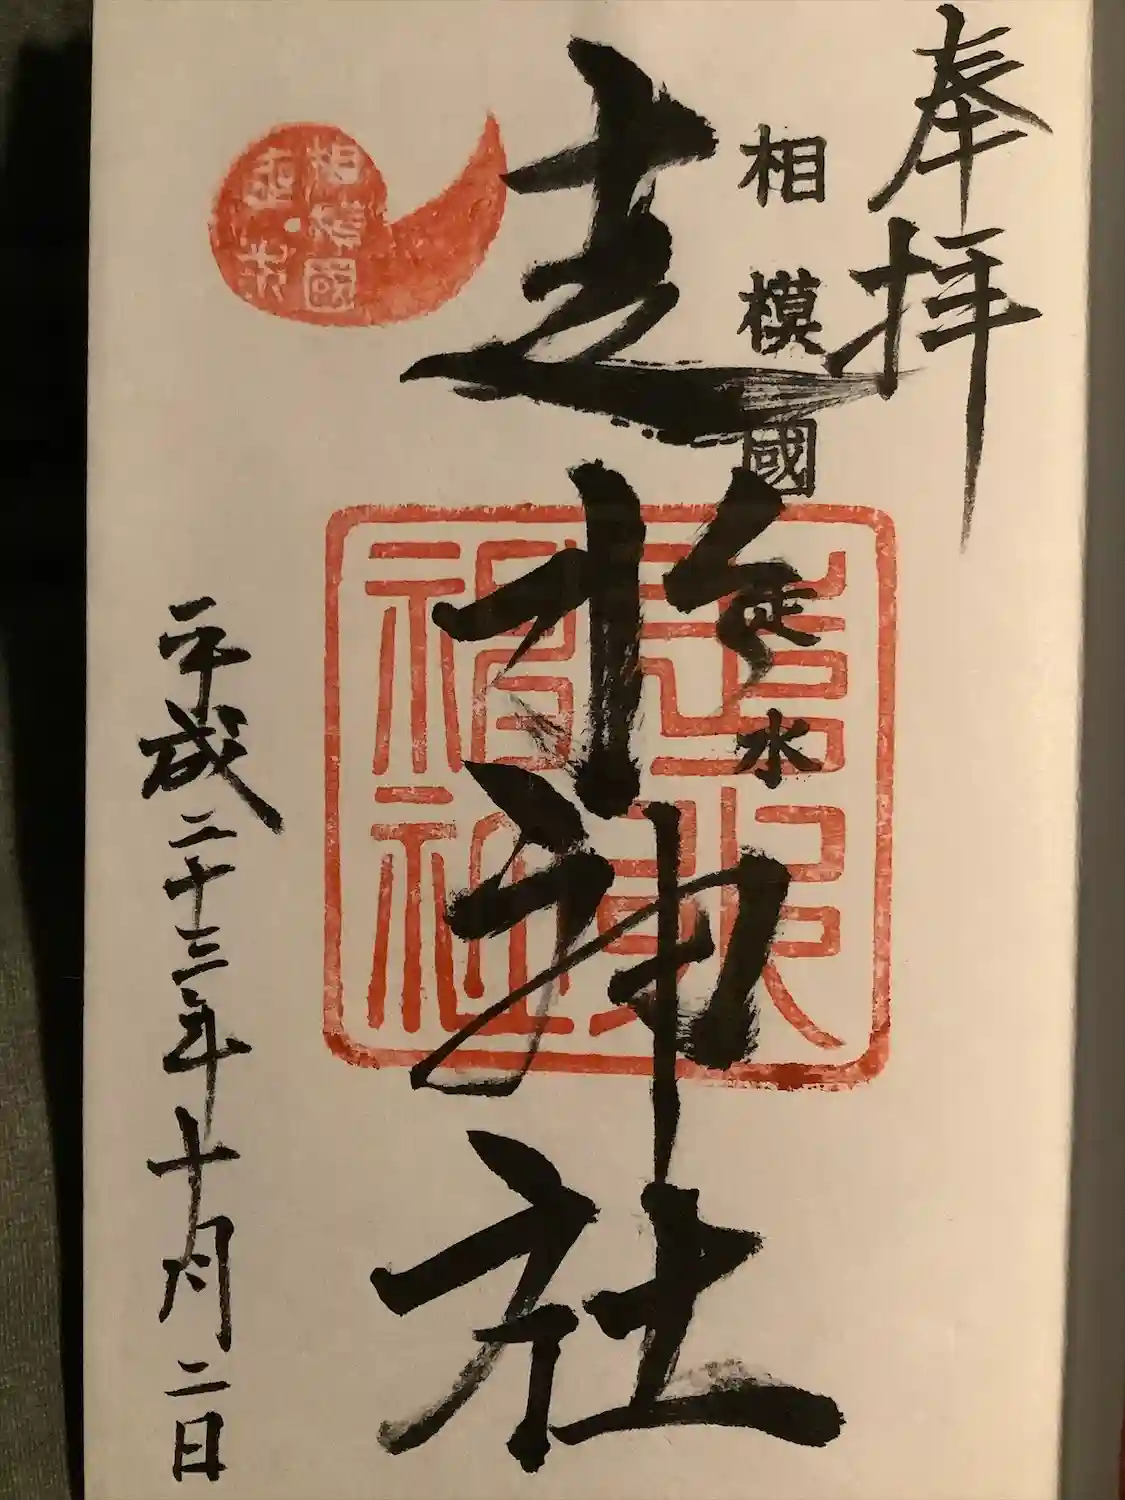 奉拝
相模國 走水
走水神社
平成二十三年十月二日
相模國
走水
走水神社